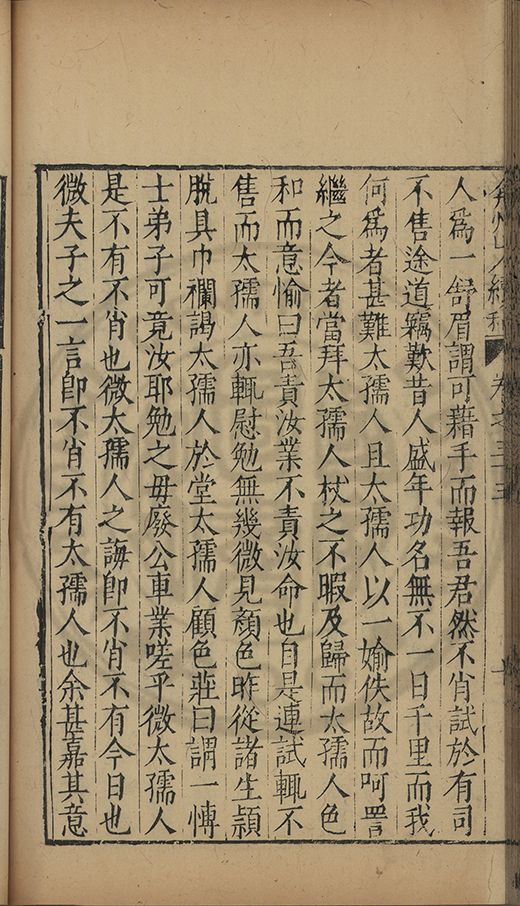 弇州山人續稿 卷之三十五
人爲一舒眉謂可藉手而報吾君然不肖試於有司
不售途道竊歎昔人盛年功名無不一日千里而我
何爲者甚難太孺人且太孺人以一媮佚故而呵詈
繼之今者當拜太孺人杖之不暇及歸而太孺人色
和而意愉曰吾責汝業不責汝命也自是連試輒不
售而太孺人亦輒慰勉無幾微見顏色昨從諸生頴
脫具巾襴謁太孺人於堂太孺人顧色莊曰謂一博
士弟子可竟汝耶勉之毋廢公車業嗟乎微太孺人
是不有不肖也微太孺人之誨卽不肖不有今日也
微夫子之一言卽不肖不有太孺人也余甚嘉其意